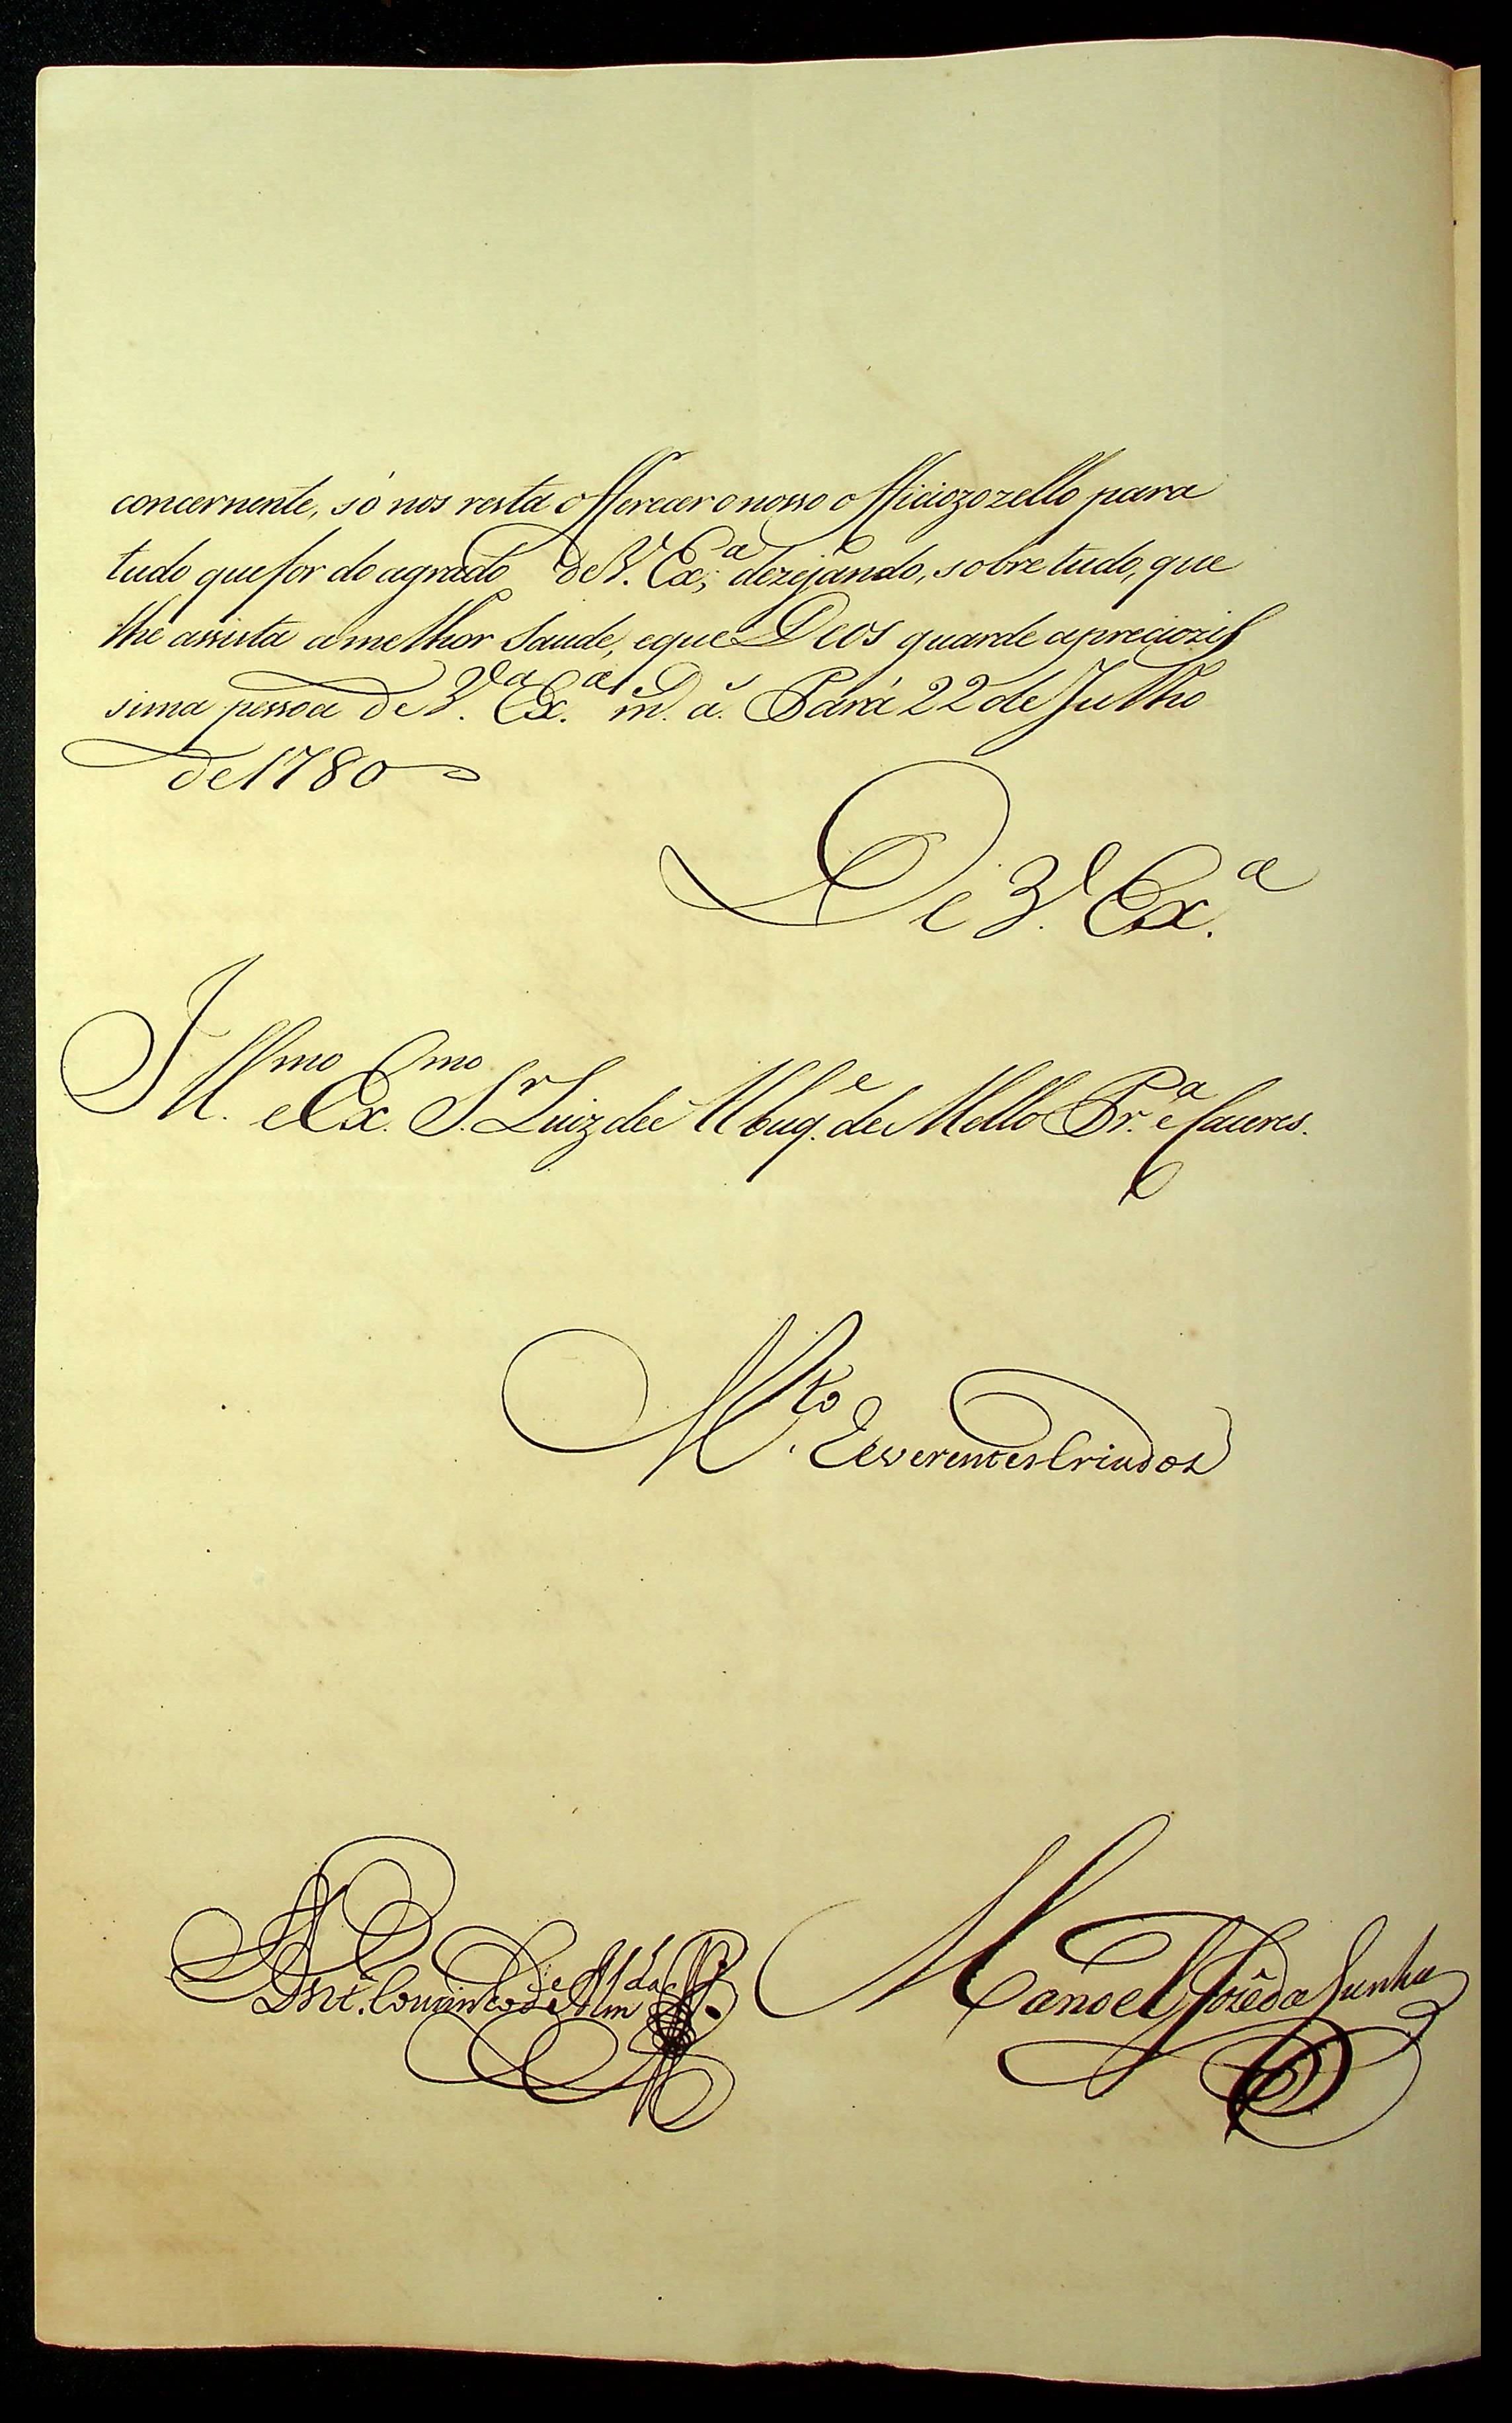 concernente, só nos resta offerecer o nosso officiozo zello para
tudo que for do agrado de V. Ex.ª; dezejando, sobre tudo, que
lhe assista a melhor Saude, e que Deos guarde a preciozis
sima pessoa de V.ª Ex.ª m.ˢ a.ˢ Pará 22 de Julho
de 1780
De V. Ex.ª
Ill.mo e Ex.mo S.r Luiz de Albuq.e de Mello Pr.ª e Caceres.
M.to Reverentes Criados
Manoel Jozê da Cunha